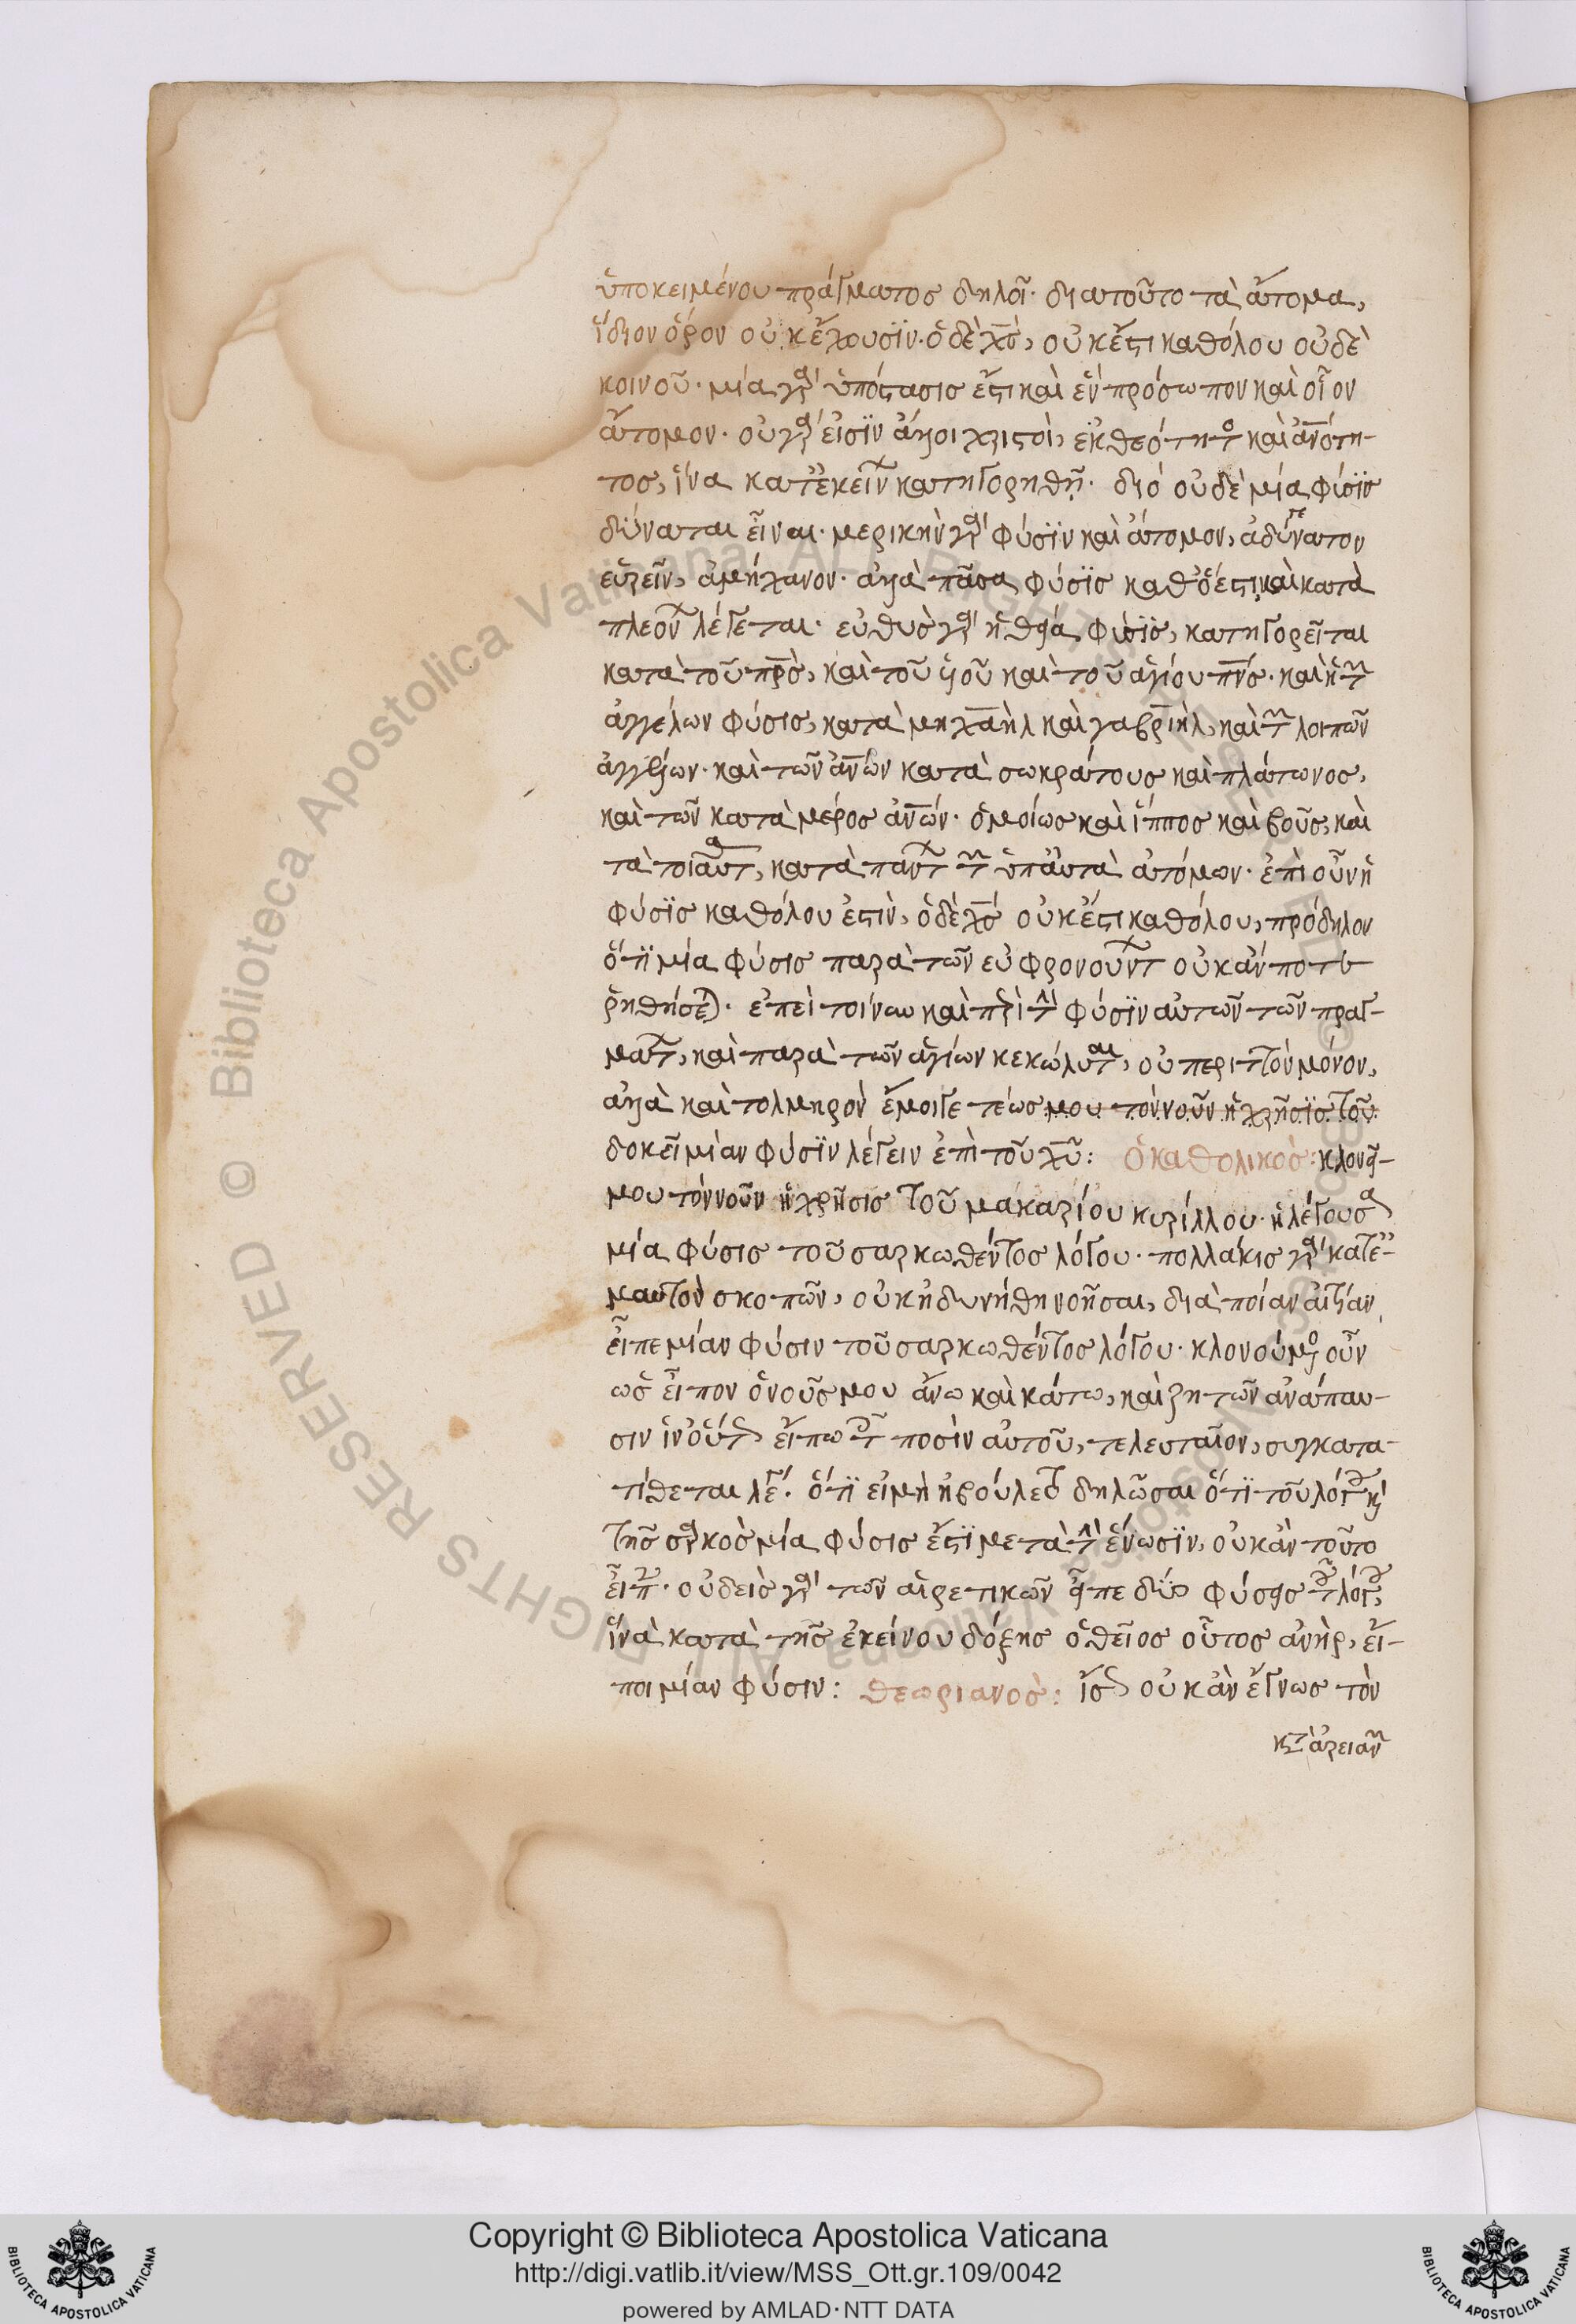 ὑποκειμένου πράγματος δηλοῖ· διατοῦτο τὰ ἄτομα,
ἴδιον ὅρον οὐκ ἔχουσϊν· ὁ δὲ χ̅ς̅, οὐκ ἔστι καθόλου οὐδὲ
κοινοῦ· μία γὰρ ὑπόστασις ἔστι καὶ ἓν πρόσωπον καὶ οἷον
ἄτομον· οὐ γὰρ εἰσῒν ἄλλοι χριστοὶ, ἐκ θεότητος καὶ ἀνότη-
τος, ἵνα κατ' ἐκείνων κατηγορηθῇ· διό οὐδὲ μία φύσϊς
δύναται εἶναι· μερικὴν γὰρ φύσϊν καὶ ἄτομον, ἀδύνατον
εὑρεῖν, ἀμήχανον· ἀλλὰ πᾶσα φύσϊς καθό ἔστι, καὶ κατὰ
πλεόνων λέγεται· εὐθὺς γὰρ ἡ θεία φύσϊς, κατηγορεῖται
κατὰ τοῦ πρ̅ς̅, καὶ τοῦ υἱοῦ καὶ τοῦ ἁγίου πν̅ς̅· καὶ ἡ τῶν
ἀγγέλων φύσις, κατὰ μηχαὴλ καὶ γαβριὴλ, καὶ τῶν λοιπῶν
ἀγγέλων· καὶ τῶν ἀν̅ων κατὰ σωκράτους καὶ πλάτωνος,
καὶ τῶν κατὰ μέρος ἀν̅ων· ὁμοίως καὶ ἵππος καὶ βοῦς, καὶ
τὰ τοιαῦτα, κατὰ πάντων τῶν ὑπ' αὐτὰ ἀτόμων· ἐπὶ οὖν ἡ
φύσϊς καθόλου ἐστὶν, ὁ δὲ χ̅ς̅ οὐκ ἔστι καθόλου, πρόδηλον
ὅτϊ μία φύσις παρὰ τῶν εὐφρονούντων οὐκ ἄν ποτε
ῥηθήσεται· ἐπεὶ τοίνυν καὶ περὶ τὴν φύσϊν αὐτῶν τῶν πραγ-
μάτων, καὶ παρὰ τῶν ἁγίων κεκώλυται, οὐ περιττὸν μόνον,
ἀλλὰ καὶ τολμηρὸν ἔμοιγε τέως μου τὸν νοῦν ἡ χρῆσϊς τοῦ
δοκεῖ μίαν φύσϊν λέγειν ἐπὶ τοῦ χ̅υ̅: ὁ καθολικὸς: κλονεῖ
μου τὸν νοῦν ἡ χρῆσις τοῦ μακαρίου κυρίλλου· ἡ λέγουσα
μία φύσις τοῦ σαρκωθέντος λόγου· πολλάκις γὰρ κατ' ἐ-
μαυτὸν σκοπῶν, οὐκ ἠδυνήθην νοῆσαι, διὰ ποίαν αἰτίαν
εἶπε μίαν φύσιν τοῦ σαρκωθέντος λόγου· κλονούμενος οὖν
ὡς εἶπον ὁ νοῦς μου ἄνω καὶ κάτω, καὶ ζητῶν ἀνάπαυ-
σιν
τίθεται λέγειν· ὅτϊ εἰ μὴ ἠβούλετο δηλῶσαι ὅτϊ τοῦ λόγου καὶ
τῆς σαρκὸς μία φύσις ἔστϊ μετὰ τὴν ἕνωσϊν, οὐκ ἂν τοῦτο
εἶπεν· οὐδεὶς γὰρ τῶν αἱρετικῶν εἶπε δύο φύσεις τοῦ λόγου,
ἵνα κατὰ τῆς ἐκείνου δόξης ὁ θεῖος οὗτος ἀνὴρ, εἴ-
ποι μίαν φύσιν: θεωριανὸς: ἴσως οὐκ ἂν ἔγνως τὸν
κατὰ ἀρειανῶν
Copyright © Biblioteca Apostolica Vaticana
http://digi.vatlib.it/view/MSS_Ott.gr.109/0042
powered by AMLAD·NTT DATA